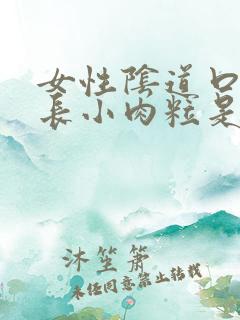 女性陰道口
長小肉粒是
沐笙簫
未经同意禁止转载